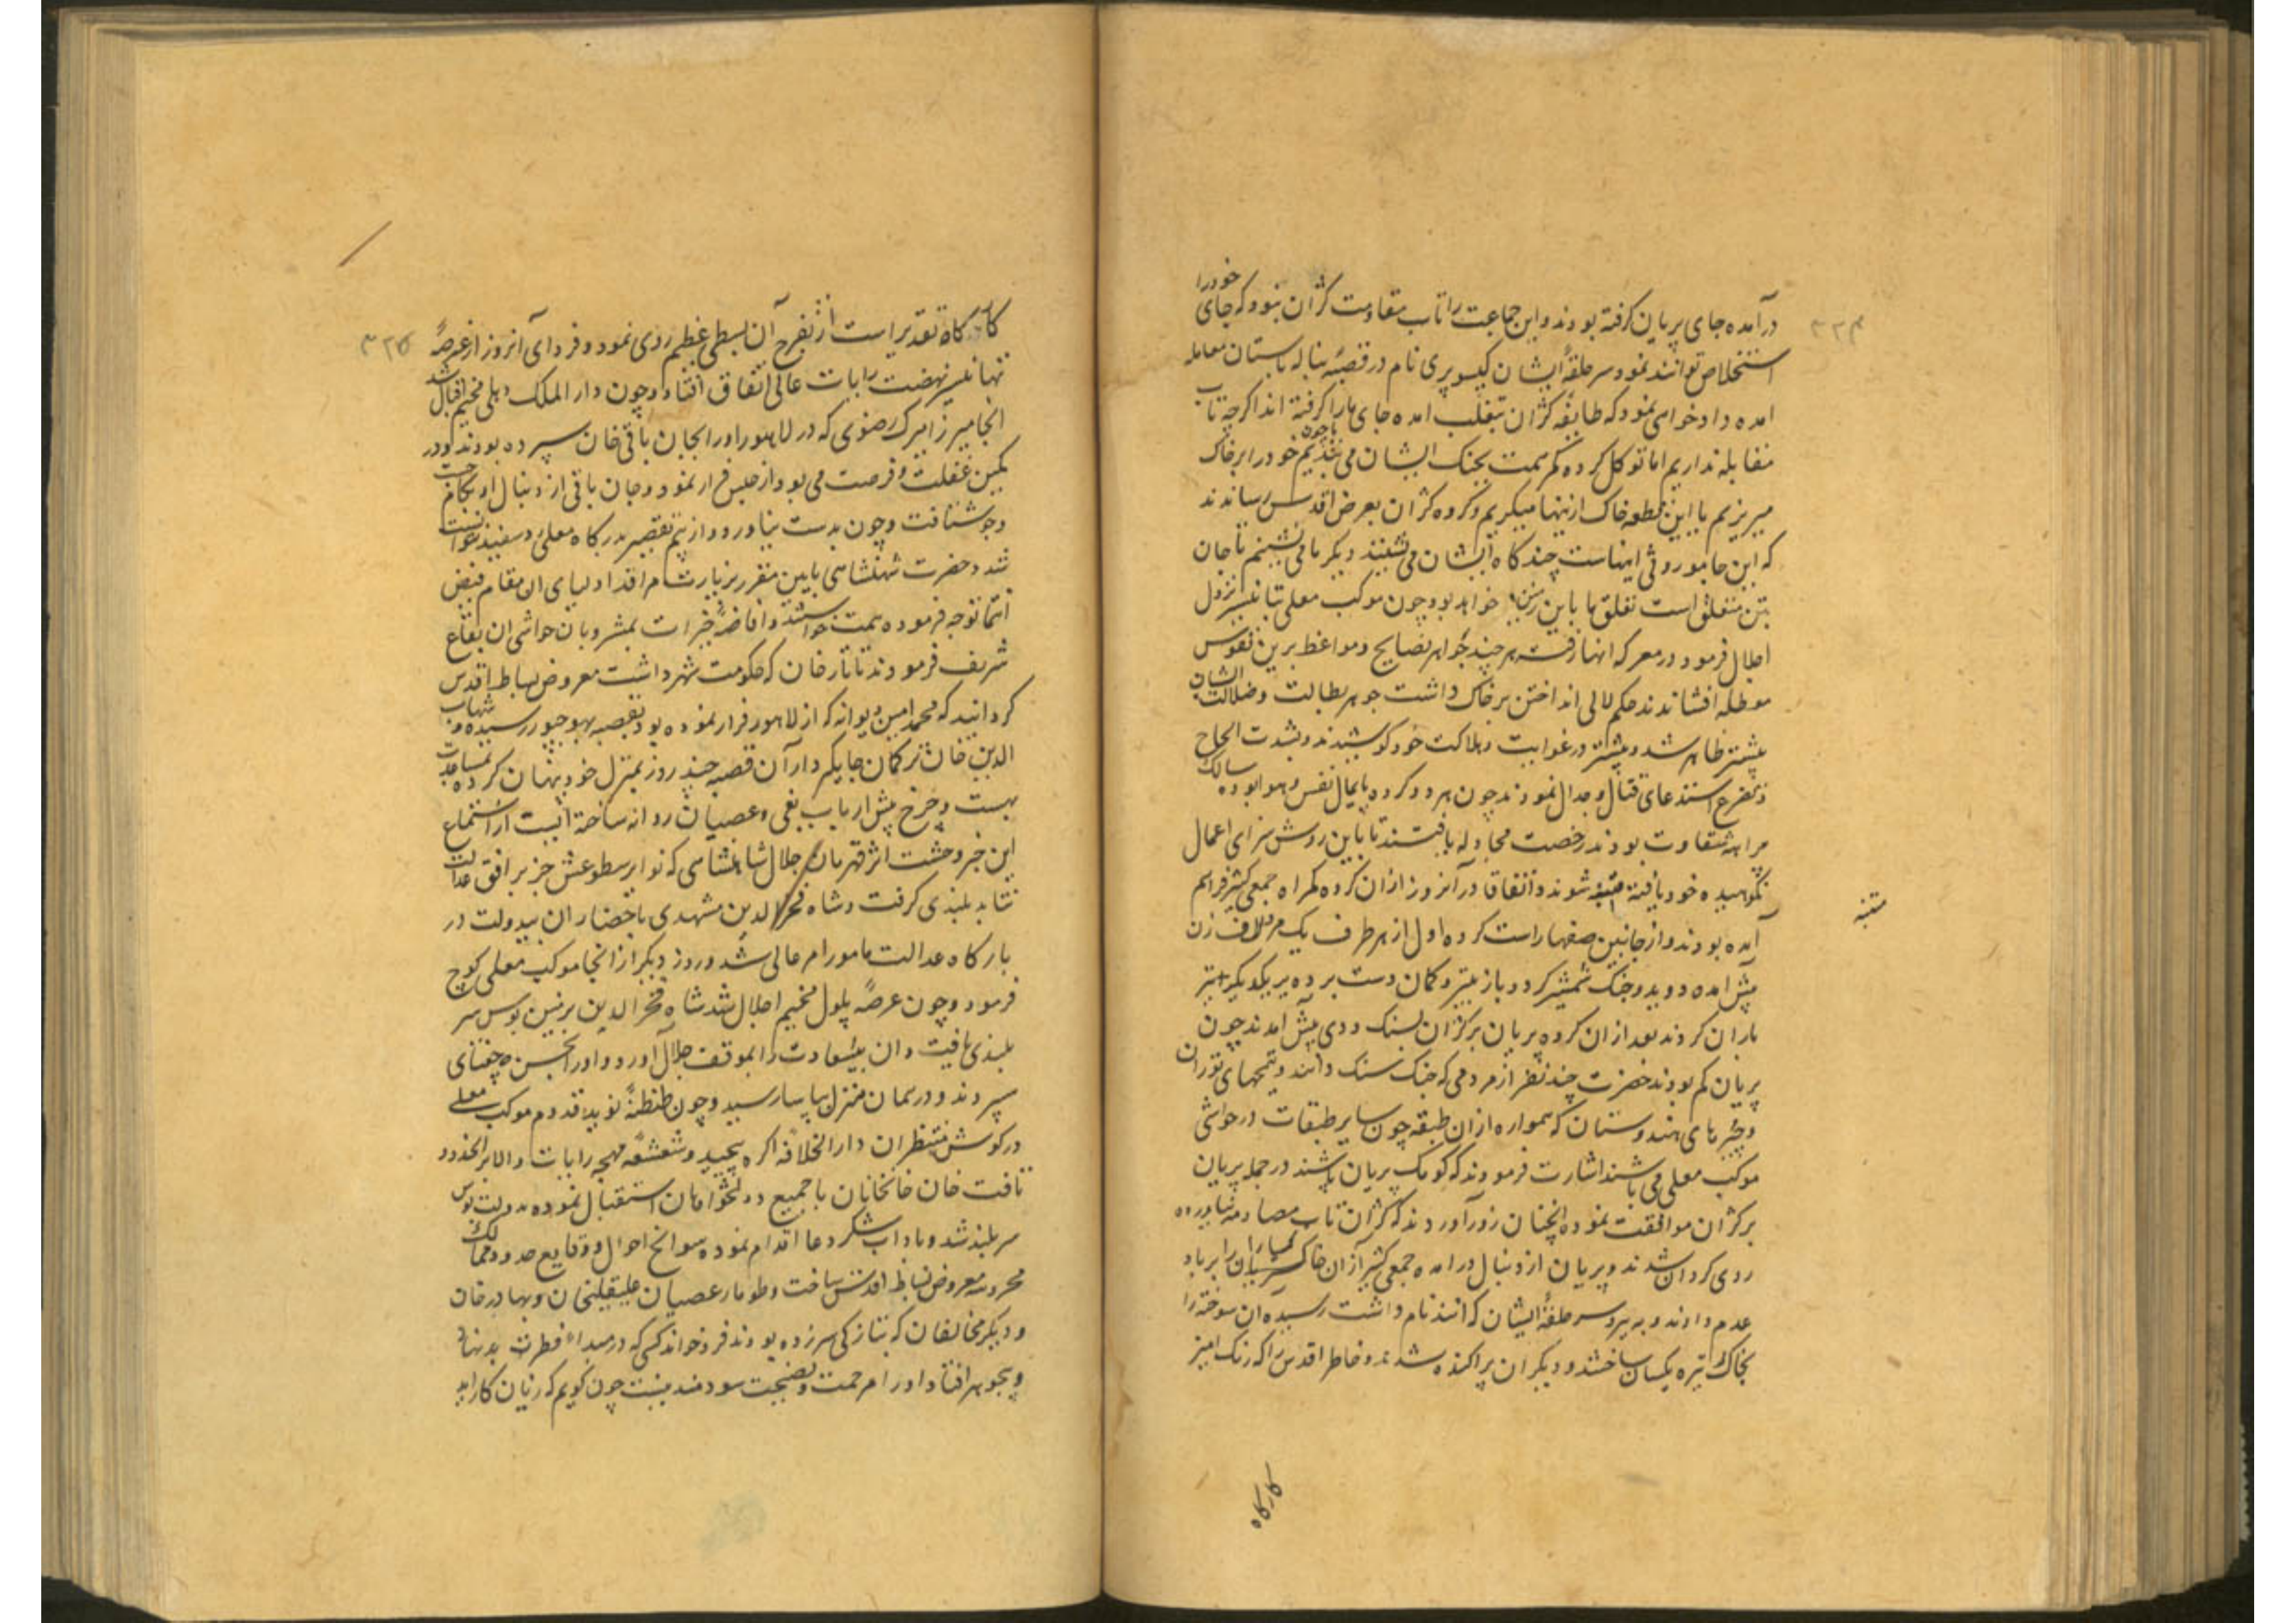 ۳۲۴
درآمده جای پریان گرفته بودند و این جماعت را تاب مقاومت کران نبود که جای خود را
استخلاص توانند نمود سر حلقهٔ ایشان کیسو پری نام در قصبهٔ بپاستان معامله
امده دادخواهی نمود که طایفه کران بتغلب امده جای ما را گرفته اند اگرچه تاب
مقابله نداریم اما توکل کرده کمر همت بجنگ ایشان می بندیم یا خون خود را بر خاک
میریزیم یا این قطعه خاک ازینها میگیریم و گروه کران بعرض اقدس رساندند
که این جا موروثی اینهاست چند گاه ایشان می نشینند دیگر ما می نشینیم تا جان
بتن متعلق است تعلق ما باین زمین خواهد بود چون موکب معلی بتانیسر نزول
اجلال فرمود در معرکه انها رفته هر چند جواهر نصایح و مواعظ برین نفوس
معطله افشاندند حکم لالی انداختن بر خاک داشت جوهر بطالت و ضلالت ایشان
بیشتر ظاهر شد و بیشتر در غوایت و هلاکت خود کوشیدند و بشدت الحاح
و تضرع استدعای قتال و جدال نمودند چون هر دو گروه پایمال نفس و هوا بوده سالک
مراتب شقاوت بودند رخصت مجادله یافتند تا باین روش سزای اعمال
نکوهیده خود یافته متنبه شوند و اتفاقا در آنروز ازان گروه گمراه جمعی کثیر فراهم
متنبه
آمده بودند و از جانبین صفها راست کرده اول از هر طرف یک مرد لاف زن
پیش امده دوید و جنگ شمشیر کرد و باز بتیر و کمان دست برده بر یکدیگر تیر
باران کردند بعد ازان گروه پریان بر کران بسنگ زدی پیش امدند چون
پریان کم بودند حضرت چند نفر از مردمی که جنگ سنگ دانند و یتیمهای توران
و چیرهای هندوستان که همواره ازان طبقه چون سایر طبقات در حواشی
موکب معلی می باشند اشارت فرمودند که کومک پریان باشند در حمله پریان
بر کران موافقت نموده انچنان زور آوردند که کران تاب مصادمه نیاورده
روی گردان شدند و پریان از دنبال درامده جمعی کثیر ازان خاکساران را بر باد
عدم دادند و به پیر و سر حلقهٔ ایشان که انند نام داشت رسیده ان سوخته را
بخاک تیره یکسان ساختند و دیگران پراکنده شدند و خاطر اقدس را که رنگ امیز
کارگاه
۳۲۵
کارگاه تقدیر است از تفرج آن بسطی عظیم روی نمود و فردای آنروز از عرصهٔ
تهانیسر نهضت رایات عالی اتفاق افتاد و چون دار الملک دهلی مخیم اقبال شد
انجا میرزا میرک رضوی که در لاهور او را بجان باقی خان سپرده بودند و در
کمین غفلت و فرصت می بود از حبس فرار نمود و جان باقی از دنبال او بکام
و جو شتافت و چون بدست نیاورد و از بیم تقصیر بدرگاه معلی سفید نتوانست
شد و حضرت شهنشاهی بایین مقرر بزیارت مراقد اولیای ان مقام فیض
انتما توجه فرموده همت خواستند و افاضهٔ خیرات بمنزویان حواشی ان بقاع
شریف فرمودند تاتار خان که حکومت شهر داشت معروض بساط اقدس
گردانید که محمد امین دیوانه که از لاهور فرار نموده بود بقصبه بهوجپور رسیده و شهاب
الدین خان ترکمان جاگیردار آن قصبه چند روز بمنزل خود پنهان کرده بمساعدت
اسپ و خرج پیش ارباب بغی و عصیان روانه ساخته است از استماع
این خبر وحشت اثر قهرمان جلال شاهنشاهی که نوایر سطوعش جز بر افق عدالت
نتابد بلندی گرفت و شاه فخر الدین مشهدی باحضار ان بیدولت در
بارگاه عدالت مامور امر عالی شد و روز دیگر از انجا موکب معلی کوچ
فرمود و چون عرصهٔ پلول مخیم اجلال شد شاه فخر الدین بزمین بوس سر
بلندی یافت و ان بیسعادت را بموقف جلال آورد و او را بحسن چغتای
سپردند و در همان منزل بیاسا رسید و چون طنطنهٔ نوید قدوم موکب معلی
در گوش منتظران دارالخلافه اگره پیچید و شعشعهٔ مهچه رایات والا بر انحدود
تافت خان خانخانان با جمیع دولتخواهان استقبال نموده بدولت بوس
سر بلند شد و باداب شکر و دعا اقدام نموده سوانح احوال و وقایع حدود ممالک
محروسه معروض بساط اقدس ساخت و طومار عصیان علیقلیخان و بهادر خان
و دیگر مخالفان که بتازگی سر زده بودند فرو خواند کسی که در مبداء فطرت بد نهاد
و بد جوهر افتاد او را مرحمت و نصیحت سودمند نیست چون گویم که زیان کار اید